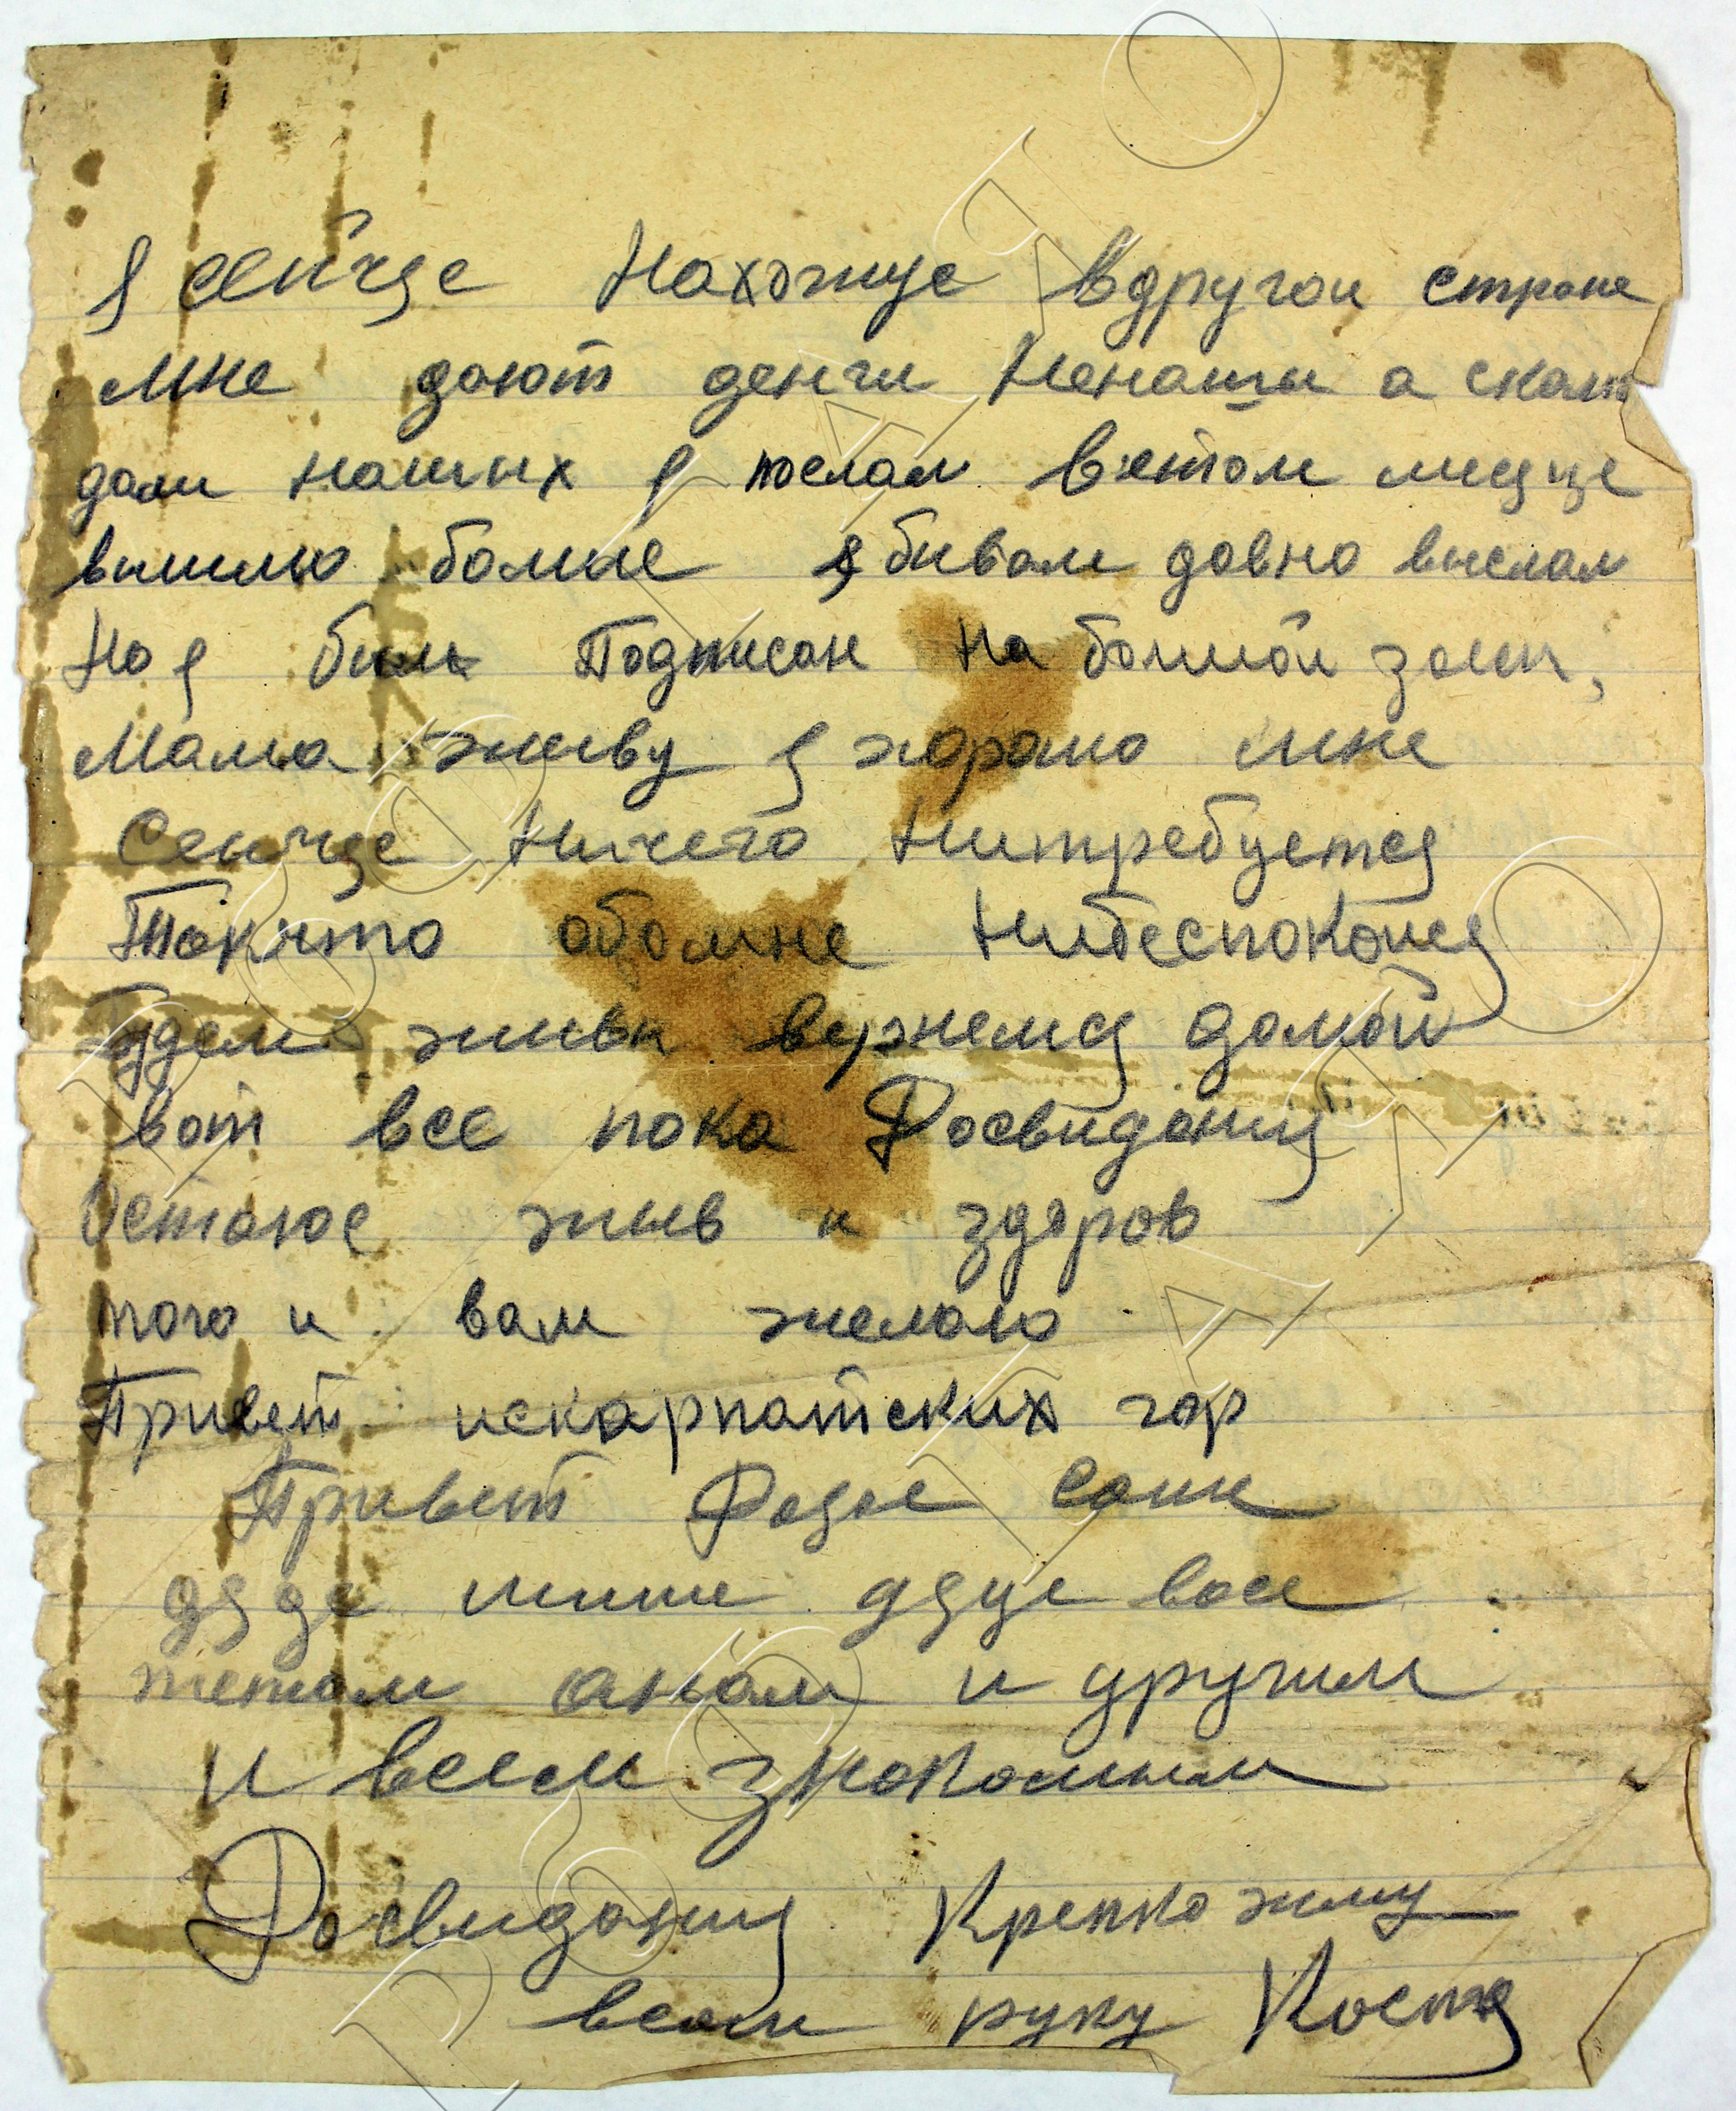 я сейчяс Нахожус вдругои стране
мне дают денги Ненашы а скаль
дали нашых я послал вэтом мецяце
вышлю болше я бивал давно выслал
Но я бил Подписан на болшой заем,
Мама живу я харашо мне
Сеичяс Ничего Нитребуетея
Так что обомне Нибеспокойся
Будем живы вернемся домой
вот все пока Досвидания
Остаюс жыв и здоров
того и вам желаю
Привет искарпатских гор
Привет Феде Сони
дяде мише дяде васе
тетам аням и другим
и всем знакомым
Досвидания Крепко жму
всем руку Костя